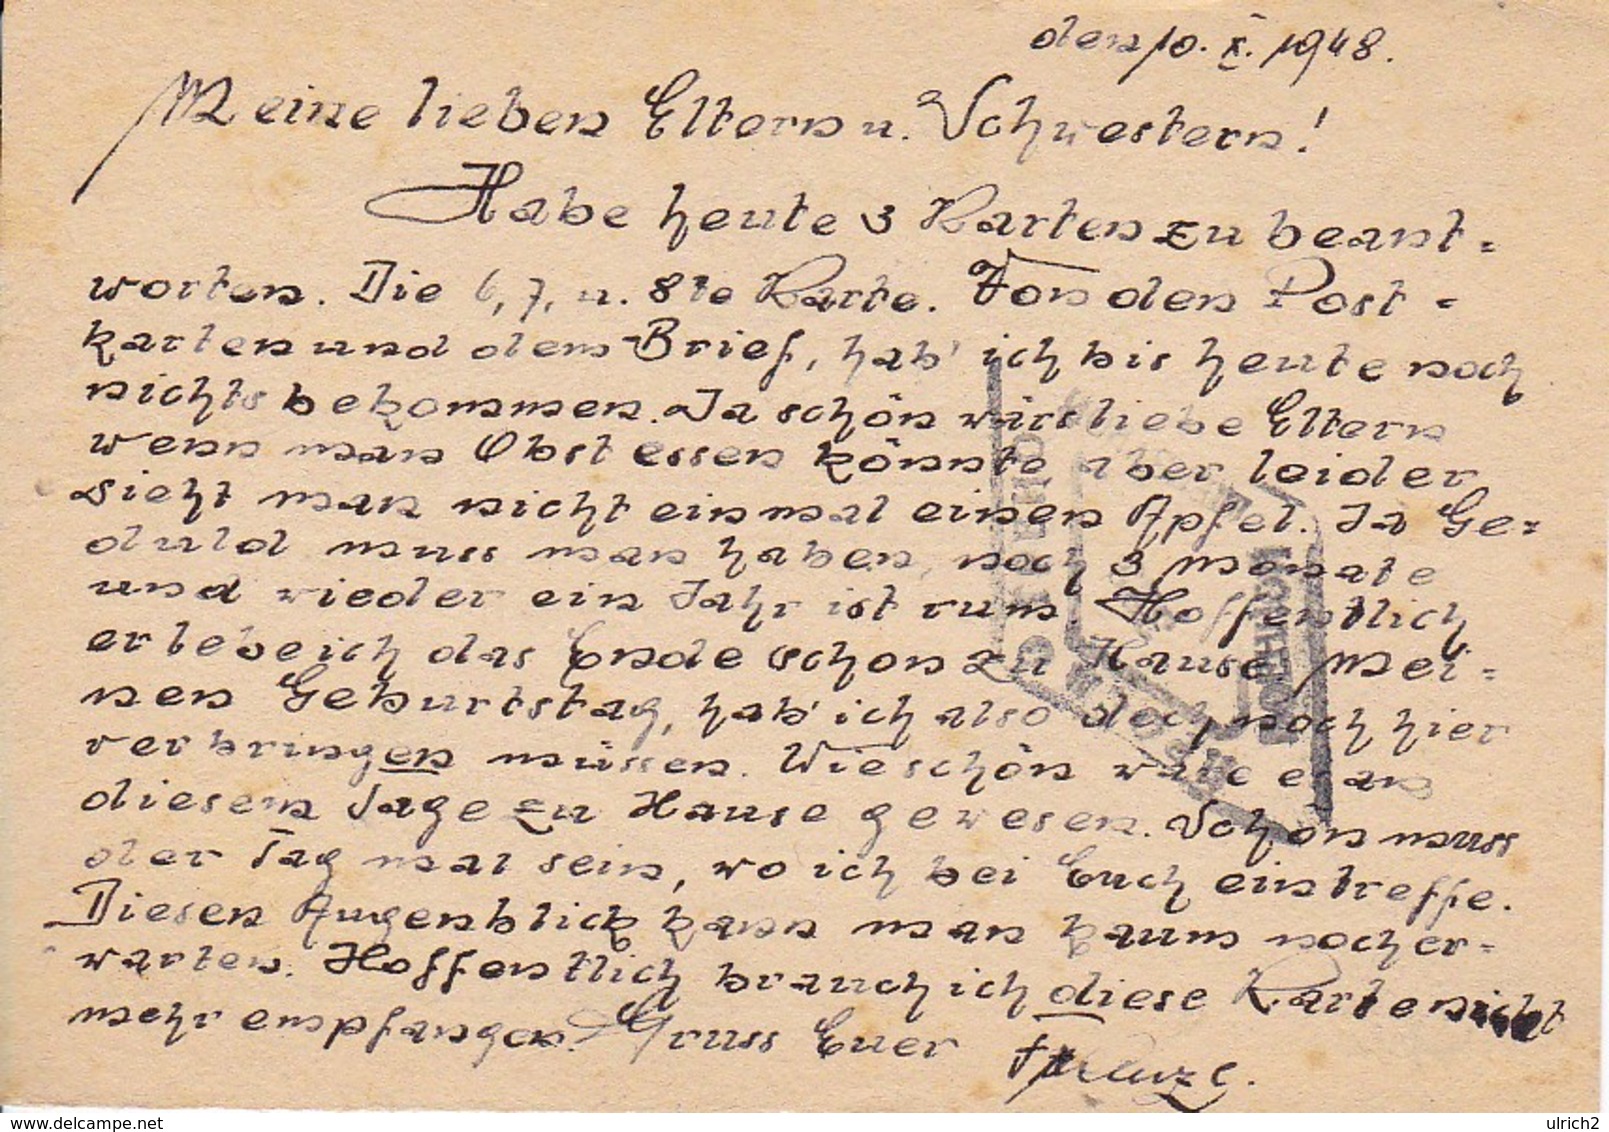 den 10. X. 1948.
Meine lieben Eltern u. Schwestern!
Habe heute 3 Karten zu beant=
worten. Die 6, 7, u. 8te Karte. Von den Post=
karten und dem Brief, hab' ich bis heute noch
nichts bekommen. Ja schön wärs liebe Eltern
wenn man Obst essen könnte aber leider
sieht man nicht einmal einen Apfel. Ja Ge=
duld muss man haben, noch 3 Monate
und wieder ein Jahr ist rum. Hoffentlich
erlebe ich das Ende schon zu Hause. Mei=
nen Geburtstag, hab' ich also doch noch hier
verbringen müssen. Wie schön wäre es an
diesem Tage zu Hause gewesen. Schön muss
der Tag mal sein, wo ich bei Euch eintreffe.
Diesen Augenblick kann man kaum noch er=
warten. Hoffentlich brauch ich diese Karte nicht
mehr empfangen. Gruss Euer
www.delcampe.net
ulrich2